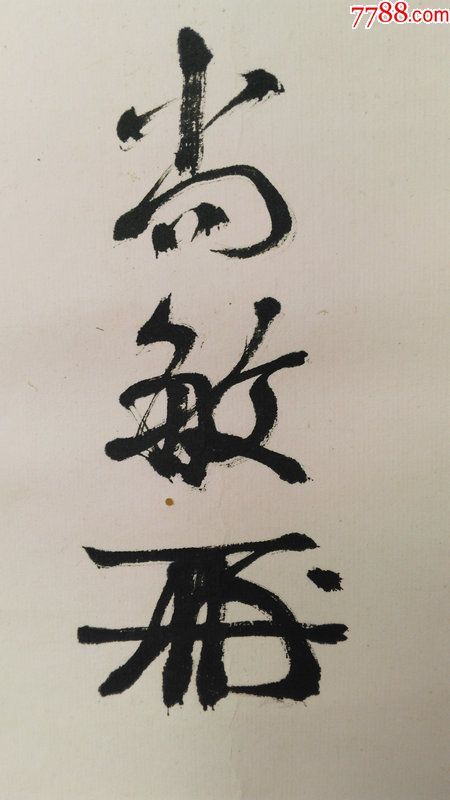 7788.com
尚
敏